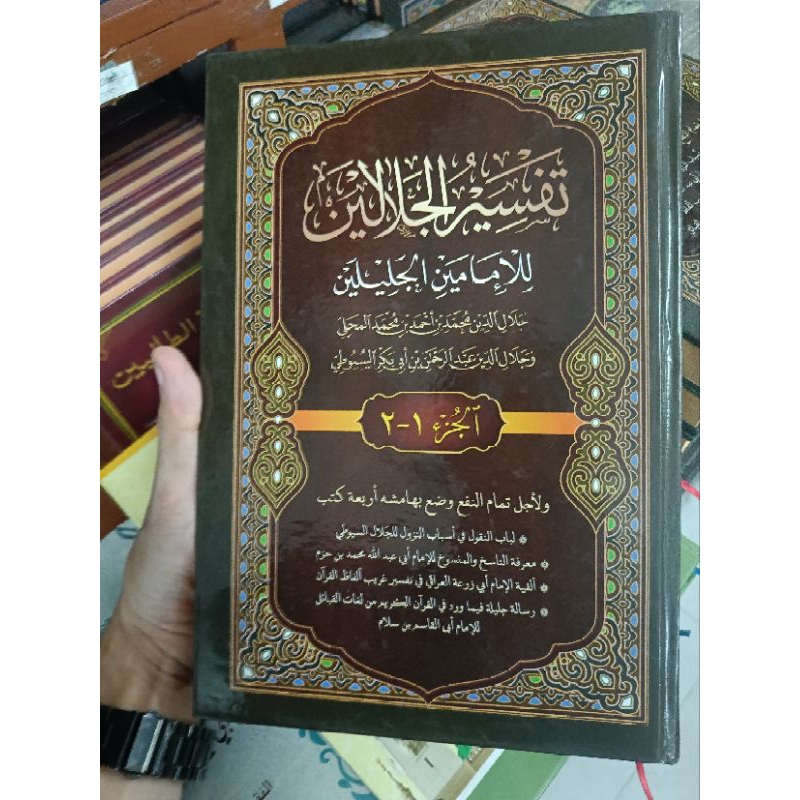 تفسير الجلالين
للإمامين الجليلين
جلال الدين محمد بن أحمد بن محمد المحلي
وجلال الدين عبد الرحمن بن أبي بكر السيوطي
الجزء ١-٢
ولأجل تمام النفع وضع بهامشه أربعة كتب
* لباب النقول في أسباب النزول للجلال السيوطي
* معرفة الناسخ والمنسوخ للإمام أبي عبد الله محمد بن حزم
* ألفية الإمام أبي زرعة العراقي في تفسير غريب ألفاظ القرآن
* رسالة جليلة فيما ورد في القرآن الكريم من لغات القبائل
للإمام أبي القاسم بن سلام
الطالبين